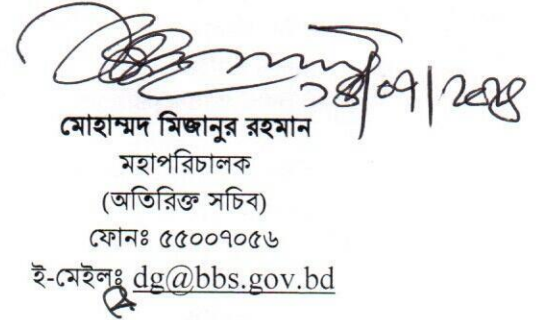 মোহাম্মদ মিজানুর রহমান
মহাপরিচালক
(অতিরিক্ত সচিব)
ফোনঃ ৫৫০০৭০৫৬
ই-মেইলঃ dg@bbs.gov.bd